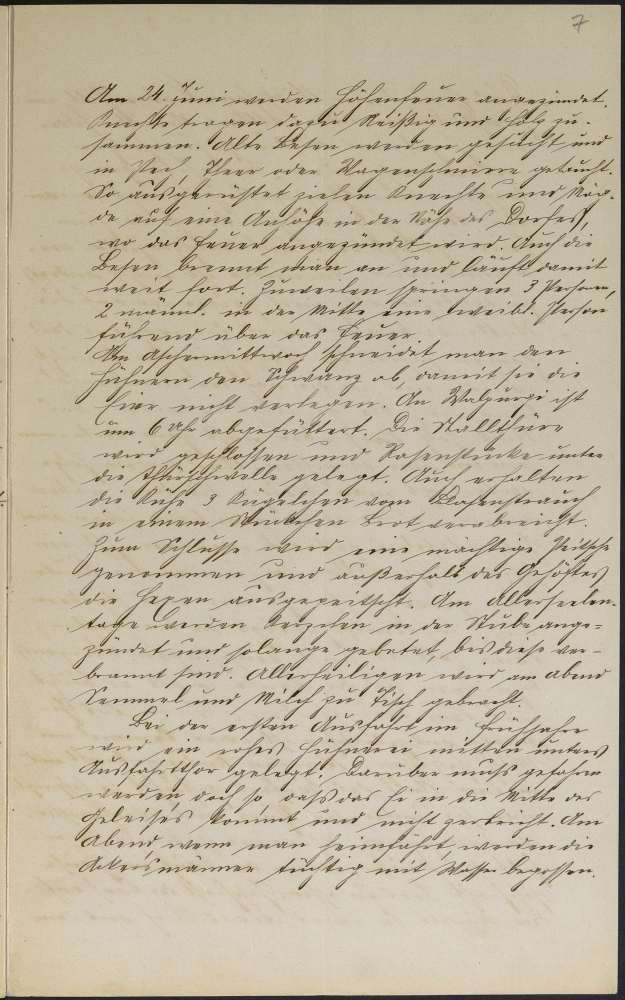 7
Am 24. Juni werden Höhenfeuer angezündet.
Knechte tragen dazu Reißig und Holz zu-
sammen. Alte Besen werden gesucht und
in Pech, Theer oder Wagenschmiere getaucht.
So ausgerüstet ziehen Knechte und Mäg-
de auf eine Anhöhe in der Nähe des Dorfes,
wo das Feuer angezündet wird. Auch die
Besen brennt man an und läuft damit
weit fort. Zuweilen springen 3 Personen,
2 männl. in der Mitte eine weibl. Person
führend über das Feuer.
Am Aschermittwoch schneidet man den
Hühnern den Schwanz ab, damit sie die
Eier nicht verlegen. An Walpurgi ist
um 6 Uhr abgefüttert. Die Stallthüre
wird geschlossen und Rosenstöcke unter
die Thürschwelle gelegt. Auch erhalten
die Kühe 3 Kügelchen vom Rosenstrauch
in einem Stückchen Brot verabreicht.
Zum Schlusse wird eine mächtige Peitsche
genommen und außerhalb des Gehöftes
die Hexen ausgepeitscht. Am Allerseelen-
tage werden Kerzchen in der Stube ange-
zündet und solange gebetet, bis diese ver-
brannt sind. Allerheiligen wird am Abend
Semmel und Milch zu Tisch gebracht.
Bei der ersten Ausfahrt im Frühjahre
wird ein rohes Hühnerei mitten unters
Ausfahrtthor gelegt. Darüber muß gefahren
werden, doch so, daß das Ei in die Mitte des
Geleises kommt und nicht zerbricht. Am
Abend, wenn man heimfährt, werden die
Ackersmänner tüchtig mit Wasser begossen.